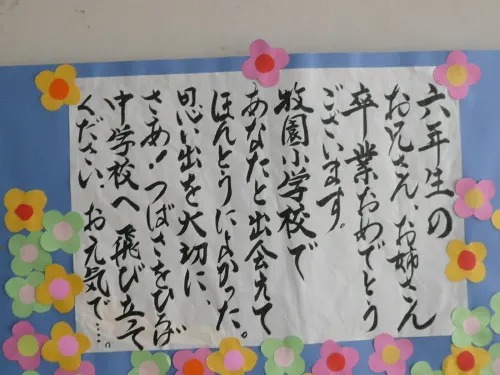 六年生の
お兄さん、お姉さん
卒業おめでとう
ございます。
牧園小学校で
あなたと出会えて
ほんとうによかった。
思い出を大切に、
さあ!つばさをひろげ
中学校へ飛び立って
ください、お元気で…。